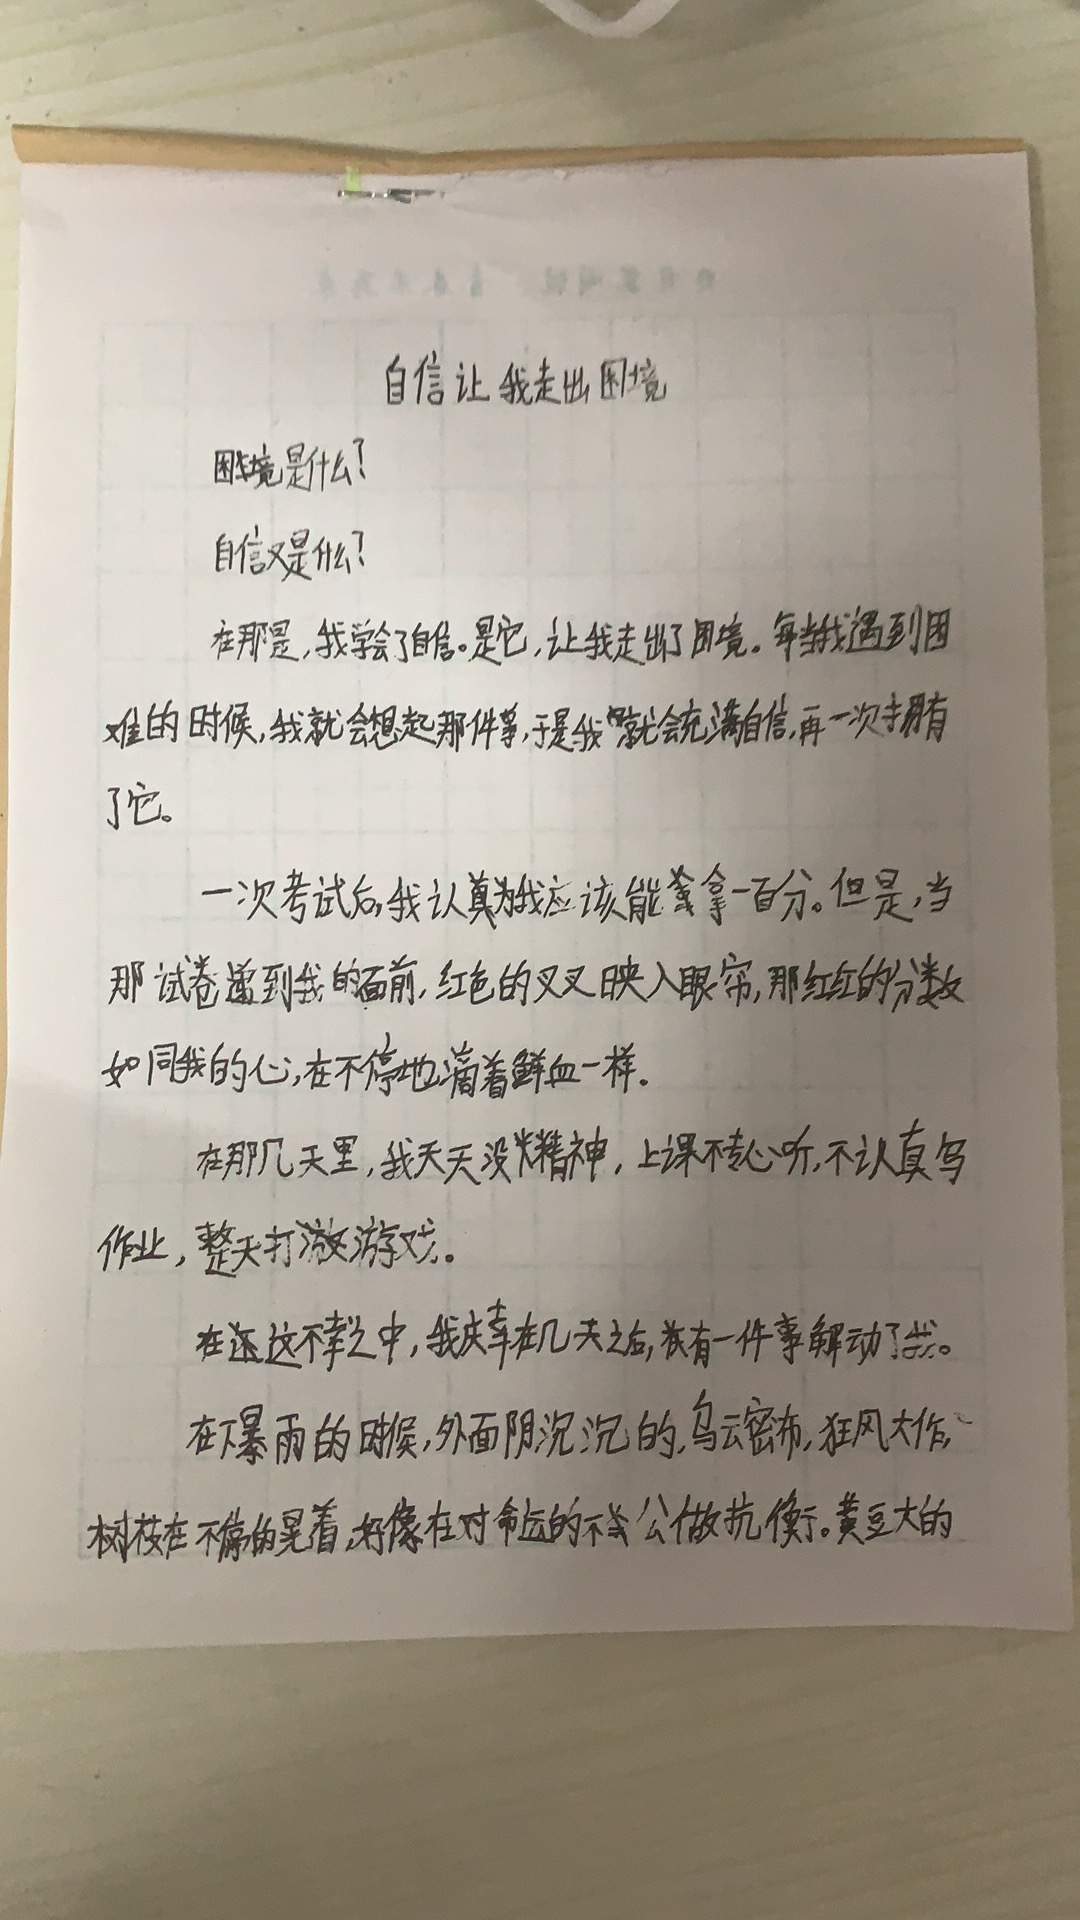 自信让我走出困境
困境是什么?
自信又是什么?
在那是,我学会了自信。是它,让我走出了困境。每当我遇到困
难的时候,我就会想起那件事,于是我就会充满自信,再一次拥有
了它。
一次考试后,我认真为我应该能拿一百分。但是,当
那试卷递到我的面前,红色的叉叉映入眼帘,那红红的分数
如同我的心,在不停地滴着鲜血一样.
在那几天里,我天天没精神,上课不专心听,不认真写
作业,整天打游戏。
在这不幸之中,我庆幸在几天之后,有一件事解动了我。
在下暴雨的时候,外面阴沉沉的,乌云密布,狂风大作,
树枝在不停的晃着,好像在对命运的不公做抗衡。黄豆大的